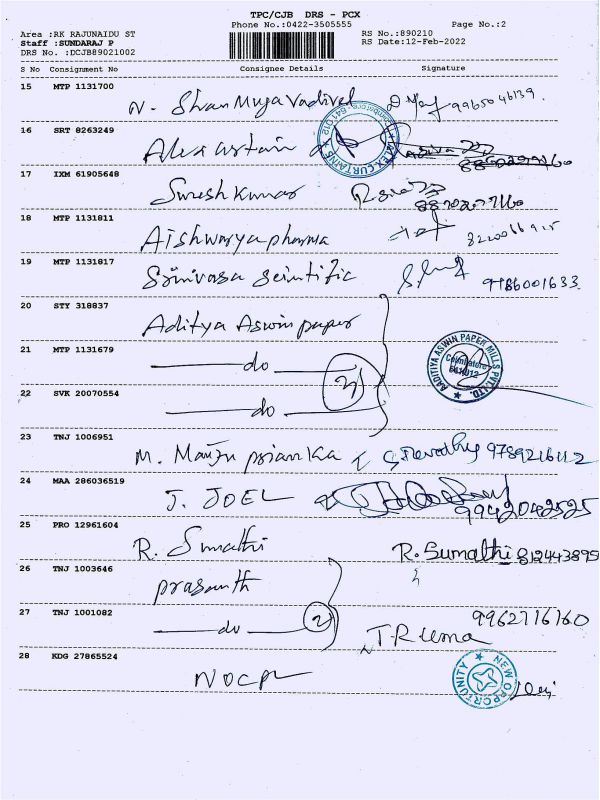 TPC/CJB DRS - PCX
Phone No.:0422-3505555 Page No.:2
Area :RK RAJUNAIDU ST RS No.:890210
Staff :SUNDARAJ P RS Date:12-Feb-2022
DRS No. :DCJB89021002
S No Consignment No Consignee Details Signature
15 MTP 1131700
N. Shan Muga Vadivel 9965046139.
16 SRT 8263249
Alex curtain
ALEX CURTAINS
17 IXM 61905648
Suresh kumar
18 MTP 1131811
Aishwarya pharma
19 MTP 1131817
Srinivasa scintific 9786001633
20 STY 318837
Aditya Aswin paper
AADITIYA ASWIN PAPER MILLS PVT. LTD.
Coimbatore
641 012
21 MTP 1131679
do
22 SVK 20070554
do
23 TNJ 1006951
M. Manju prianka
24 MAA 286036519
J. JOEL 9942042525
25 PRO 12961604
R. Sumathi R. Sumathi 812443899
26 TNJ 1003646
prasanth
27 TNJ 1001082 9962716160
do 2 T.R uma
28 KDG 27865524
NOCPL
NEW OPPORTUNITY